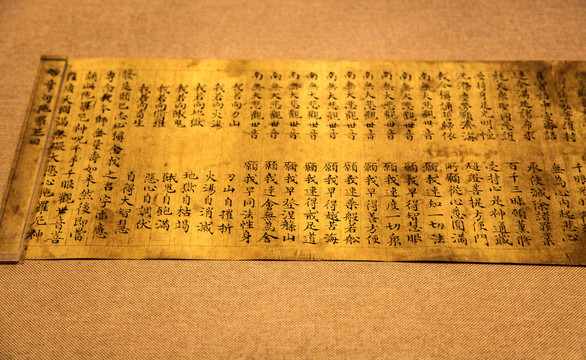 無為心內起悲心
永使滅除諸罪業
龍天眾聖同慈護 百千三昧頓熏修
受持身是光明幢 受持心是神通藏
洗滌塵勞願濟海 超證菩提方便門
我今稱誦誓歸依 所願從心悉圓滿
南無大悲觀世音 願我速知一切法
南無大悲觀世音 願我早得智慧眼
南無大悲觀世音 願我速度一切眾
南無大悲觀世音 願我早得善方便
南無大悲觀世音 願我速乘般若船
南無大悲觀世音 願我早得越苦海
南無大悲觀世音 願我速得戒足道
南無大悲觀世音 願我早登涅槃山
南無大悲觀世音 願我速會無為舍
南無大悲觀世音 願我早同法性身
我若向刀山 刀山自摧折
我若向火湯 火湯自消滅
我若向地獄 地獄自枯竭
我若向餓鬼 餓鬼自飽滿
我若向修羅 惡心自調伏
我若向畜生 自得大智慧
發是願已至心稱念我之名字亦應
專念我本師無量壽如來然後即當
誦此陀羅尼神千手千眼觀世音菩
薩廣大圓滿無礙大悲心陀羅尼神
妙章句陀羅尼曰